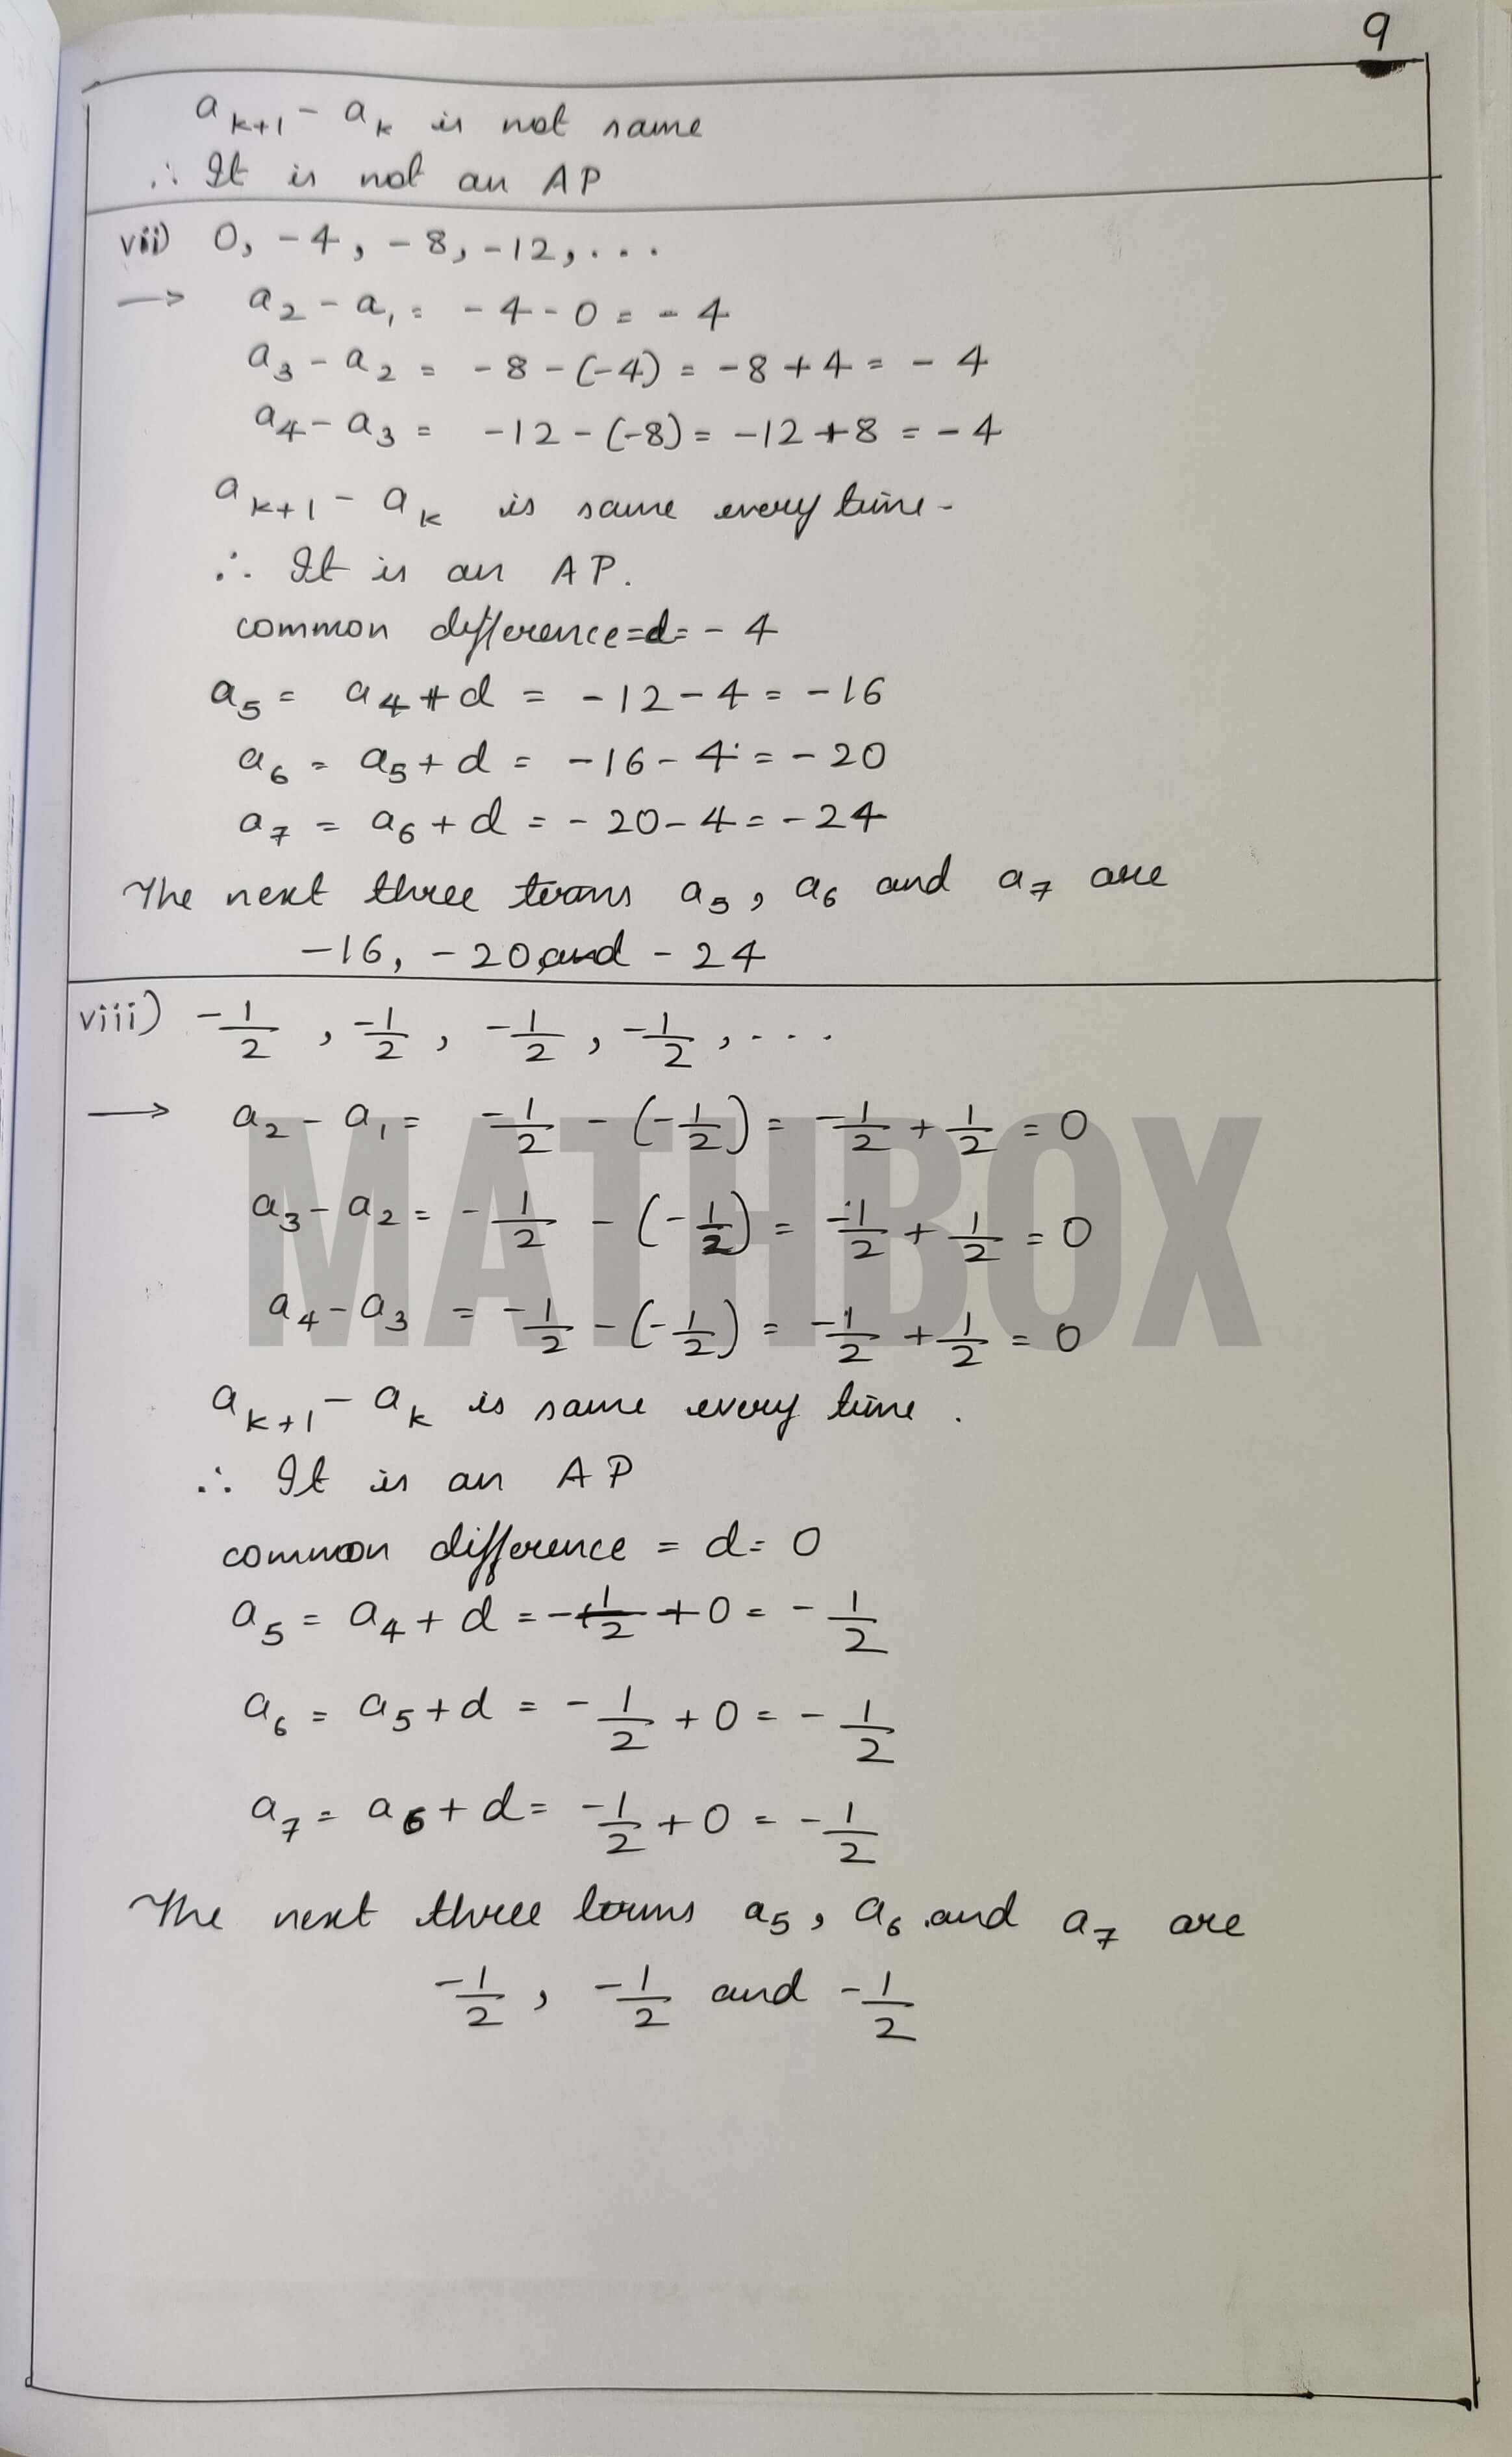 9
a_{k+1} - a_k is not same
∴ It is not an AP
vii) 0, -4, -8, -12, ...
→ a_2 - a_1 = -4 - 0 = -4
a_3 - a_2 = -8 - (-4) = -8 + 4 = -4
a_4 - a_3 = -12 - (-8) = -12 + 8 = -4
a_{k+1} - a_k is same every time.
∴ It is an AP.
common difference = d = -4
a_5 = a_4 + d = -12 - 4 = -16
a_6 = a_5 + d = -16 - 4 = -20
a_7 = a_6 + d = -20 - 4 = -24
The next three terms a_5, a_6 and a_7 are
-16, -20 and -24
viii) -1/2, -1/2, -1/2, -1/2, ...
→ a_2 - a_1 = -1/2 - (-1/2) = -1/2 + 1/2 = 0
MATHBOX
a_3 - a_2 = -1/2 - (-1/2) = -1/2 + 1/2 = 0
a_4 - a_3 = -1/2 - (-1/2) = -1/2 + 1/2 = 0
a_{k+1} - a_k is same every time.
∴ It is an AP
common difference = d = 0
a_5 = a_4 + d = -1/2 + 0 = -1/2
a_6 = a_5 + d = -1/2 + 0 = -1/2
a_7 = a_6 + d = -1/2 + 0 = -1/2
The next three terms a_5, a_6 and a_7 are
-1/2, -1/2 and -1/2